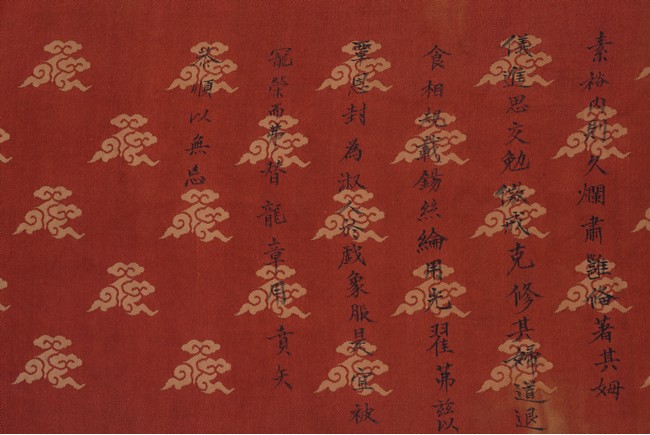 素裕內則久嫺肅雝備著其姆
儀進思交勉儆戒克修其婦道退
食相規載錫絲綸用光翟茀茲以
覃恩封為淑人於戲象服是宜被
寵榮而弗替龍章用賁矢
恭順以無忘